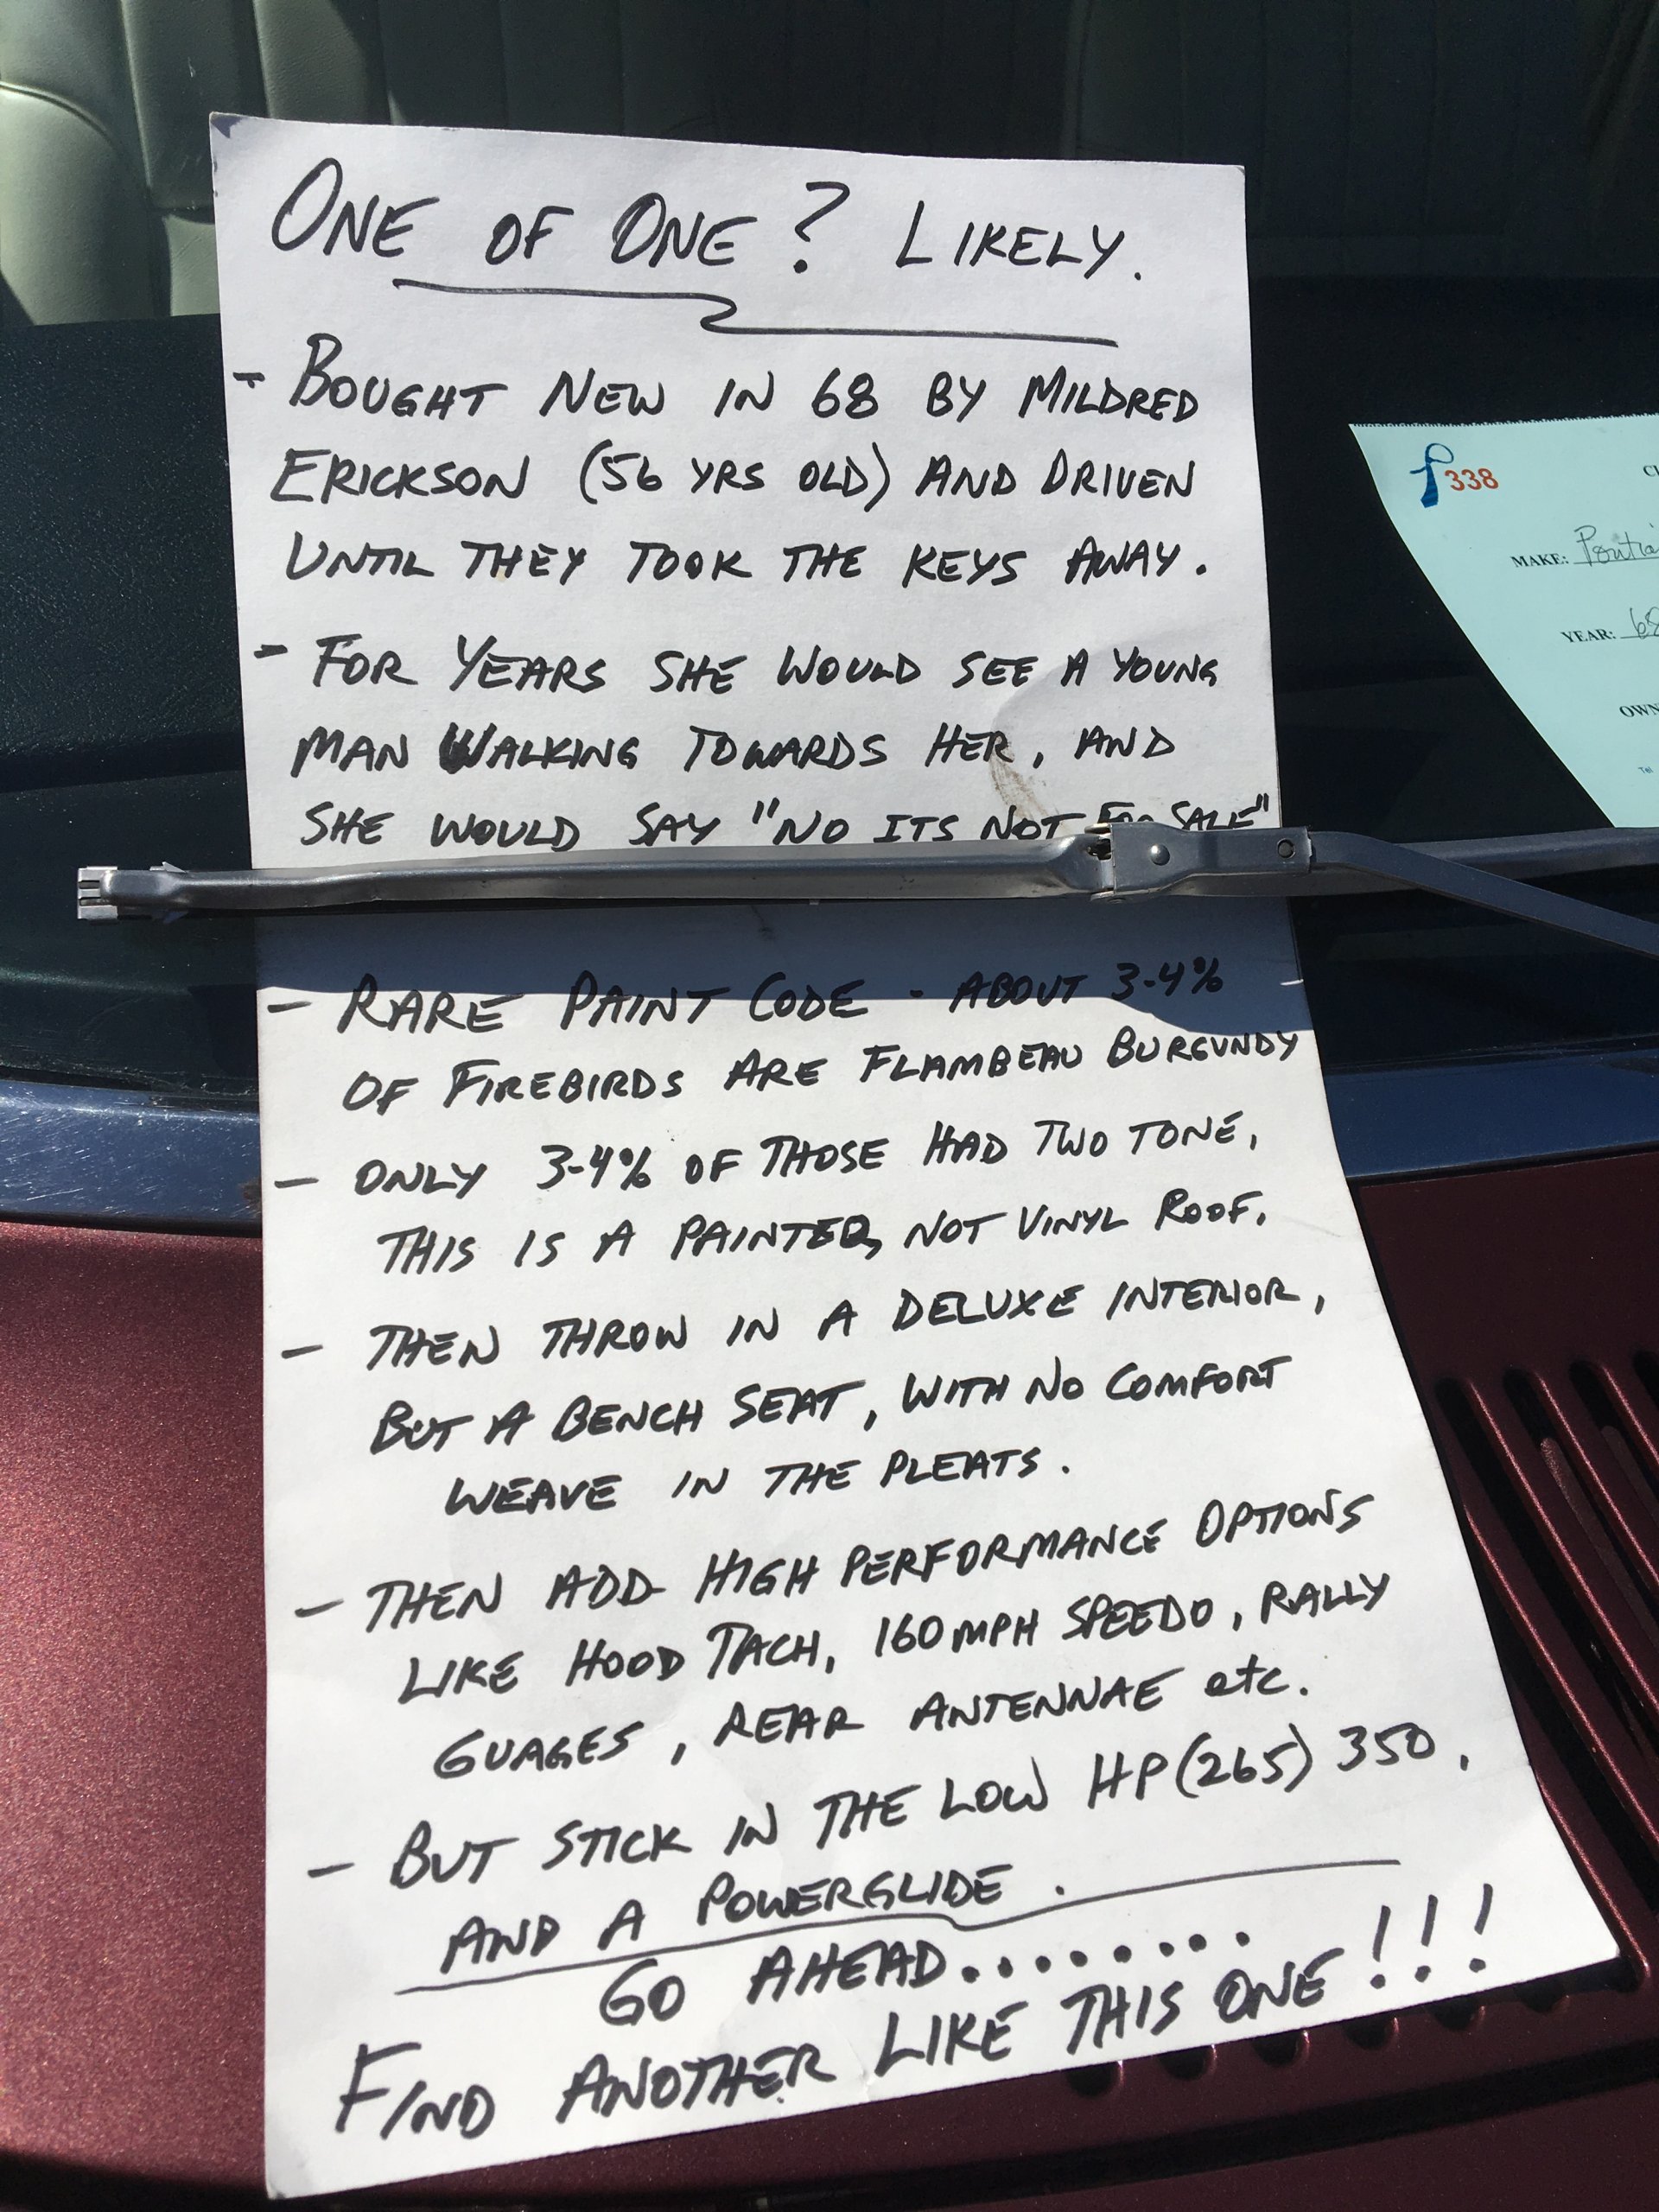 ONE OF ONE? LIKELY.
- BOUGHT NEW IN 68 BY MILDRED
ERICKSON (56 YRS OLD) AND DRIVEN
UNTIL THEY TOOK THE KEYS AWAY.
- FOR YEARS SHE WOULD SEE A YOUNG
MAN WALKING TOWARDS HER, AND
SHE WOULD SAY "NO ITS NOT FOR SALE"
- RARE PAINT CODE - ABOUT 3-4%
OF FIREBIRDS ARE FLAMBEAU BURGUNDY
- ONLY 3-4% OF THOSE HAD TWO TONE,
THIS IS A PAINTED, NOT VINYL ROOF.
- THEN THROW IN A DELUXE INTERIOR,
BUT A BENCH SEAT, WITH NO COMFORT
WEAVE IN THE PLEATS.
- THEN ADD HIGH PERFORMANCE OPTIONS
LIKE HOOD TACH, 160MPH SPEEDO, RALLY
GUAGES, REAR ANTENNAE etc.
- BUT STICK IN THE LOW HP(265) 350,
AND A POWERGLIDE.
GO AHEAD........
FIND ANOTHER LIKE THIS ONE!!!
338
MAKE:
YEAR: 68
Tel